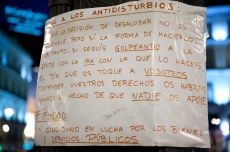 A LOS ANTIDISTURBIOS
LA DECISIÓN DE DESALOJAR NO OS
PERO SÍ LA FORMA DE HACERLO
SI SEGUÍS GOLPEANDO A LA
GENTE CON LA IRA CON LA QUE LO HACEIS
EL DÍA QUE OS TOQUE A VOSOTROS
DEFENDER VUESTROS DERECHOS OS
HECHO DE QUE NADIE OS APOYE
CIUDADANO EN LUCHA POR LOS BIENES
Y SERVICIOS PÚBLICOS